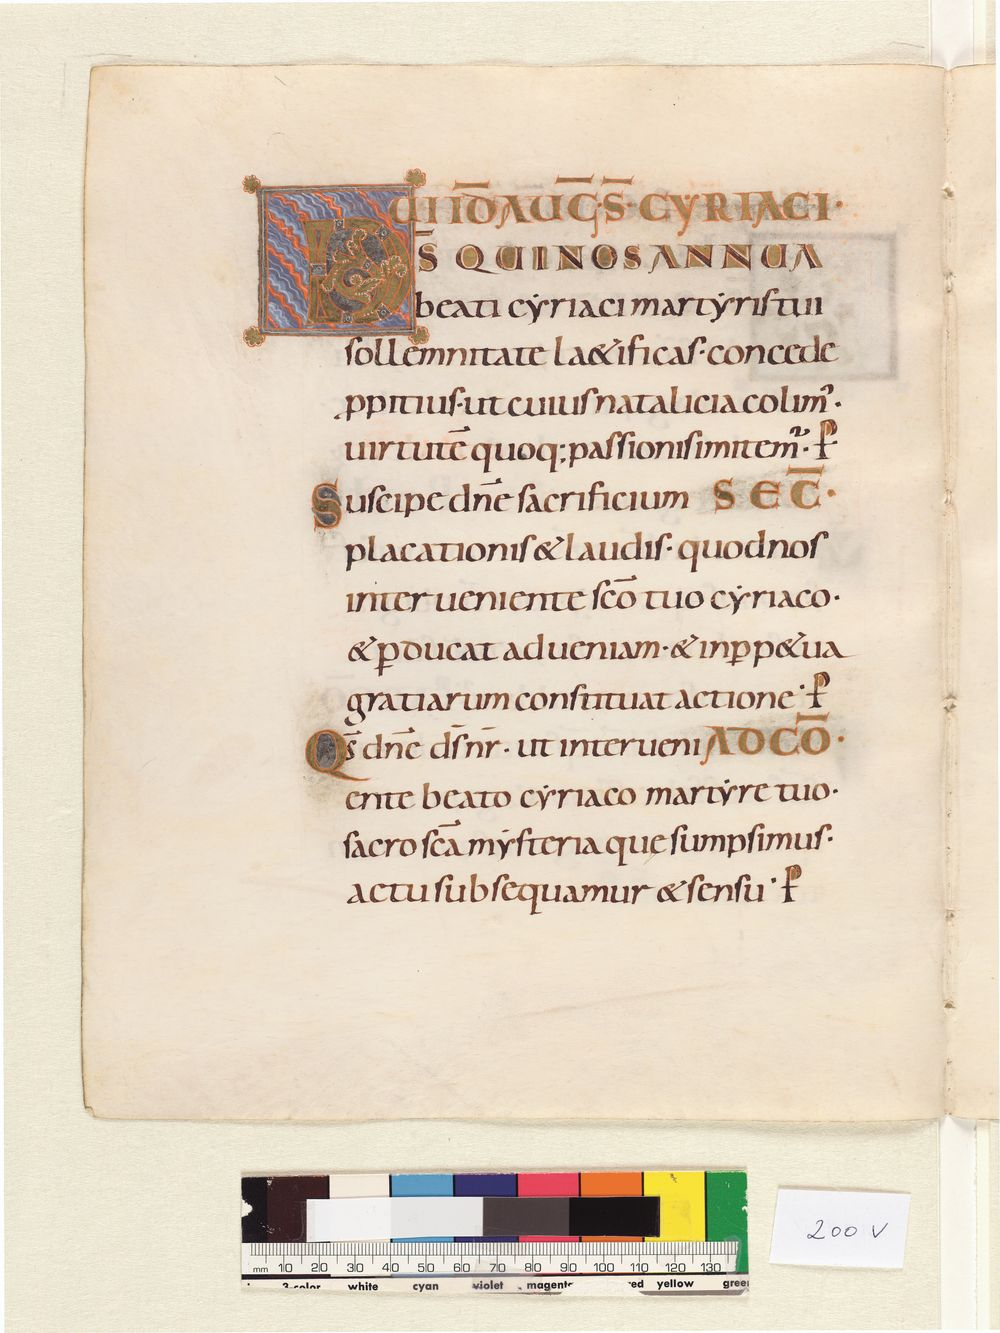 UI ID AUG̅· S̅· CYRIACI·
D S̅ QUI NOS ANNUA
beati cẏriaci martẏris tui
sollemnitate lae&ificas· concede
ꝓpitius· ut cuius natalicia colim᷒·
uirtutē quoq; passionis imitem᷒· ꝑ
Suscipe dn̄e sacrificium SEC̅·
placationis & laudis· quod nos
interueniente sc̄o tuo cẏriaco·
& ꝑducat ad ueniam· & in ꝑp&ua
gratiarum constituat actione· ꝑ
Qs̄ dn̄e ds̄ nr̄· ut interueni AD CŌ·
ente beato cẏriaco martẏre tuo·
sacro sc̄a mẏsteria que sumpsimus·
actu subsequamur & sensu· ꝑ
200 v
mm 10 20 30 40 50 60 70 80 90 100 110 120 130
3-color white cyan violet magenta red yellow green